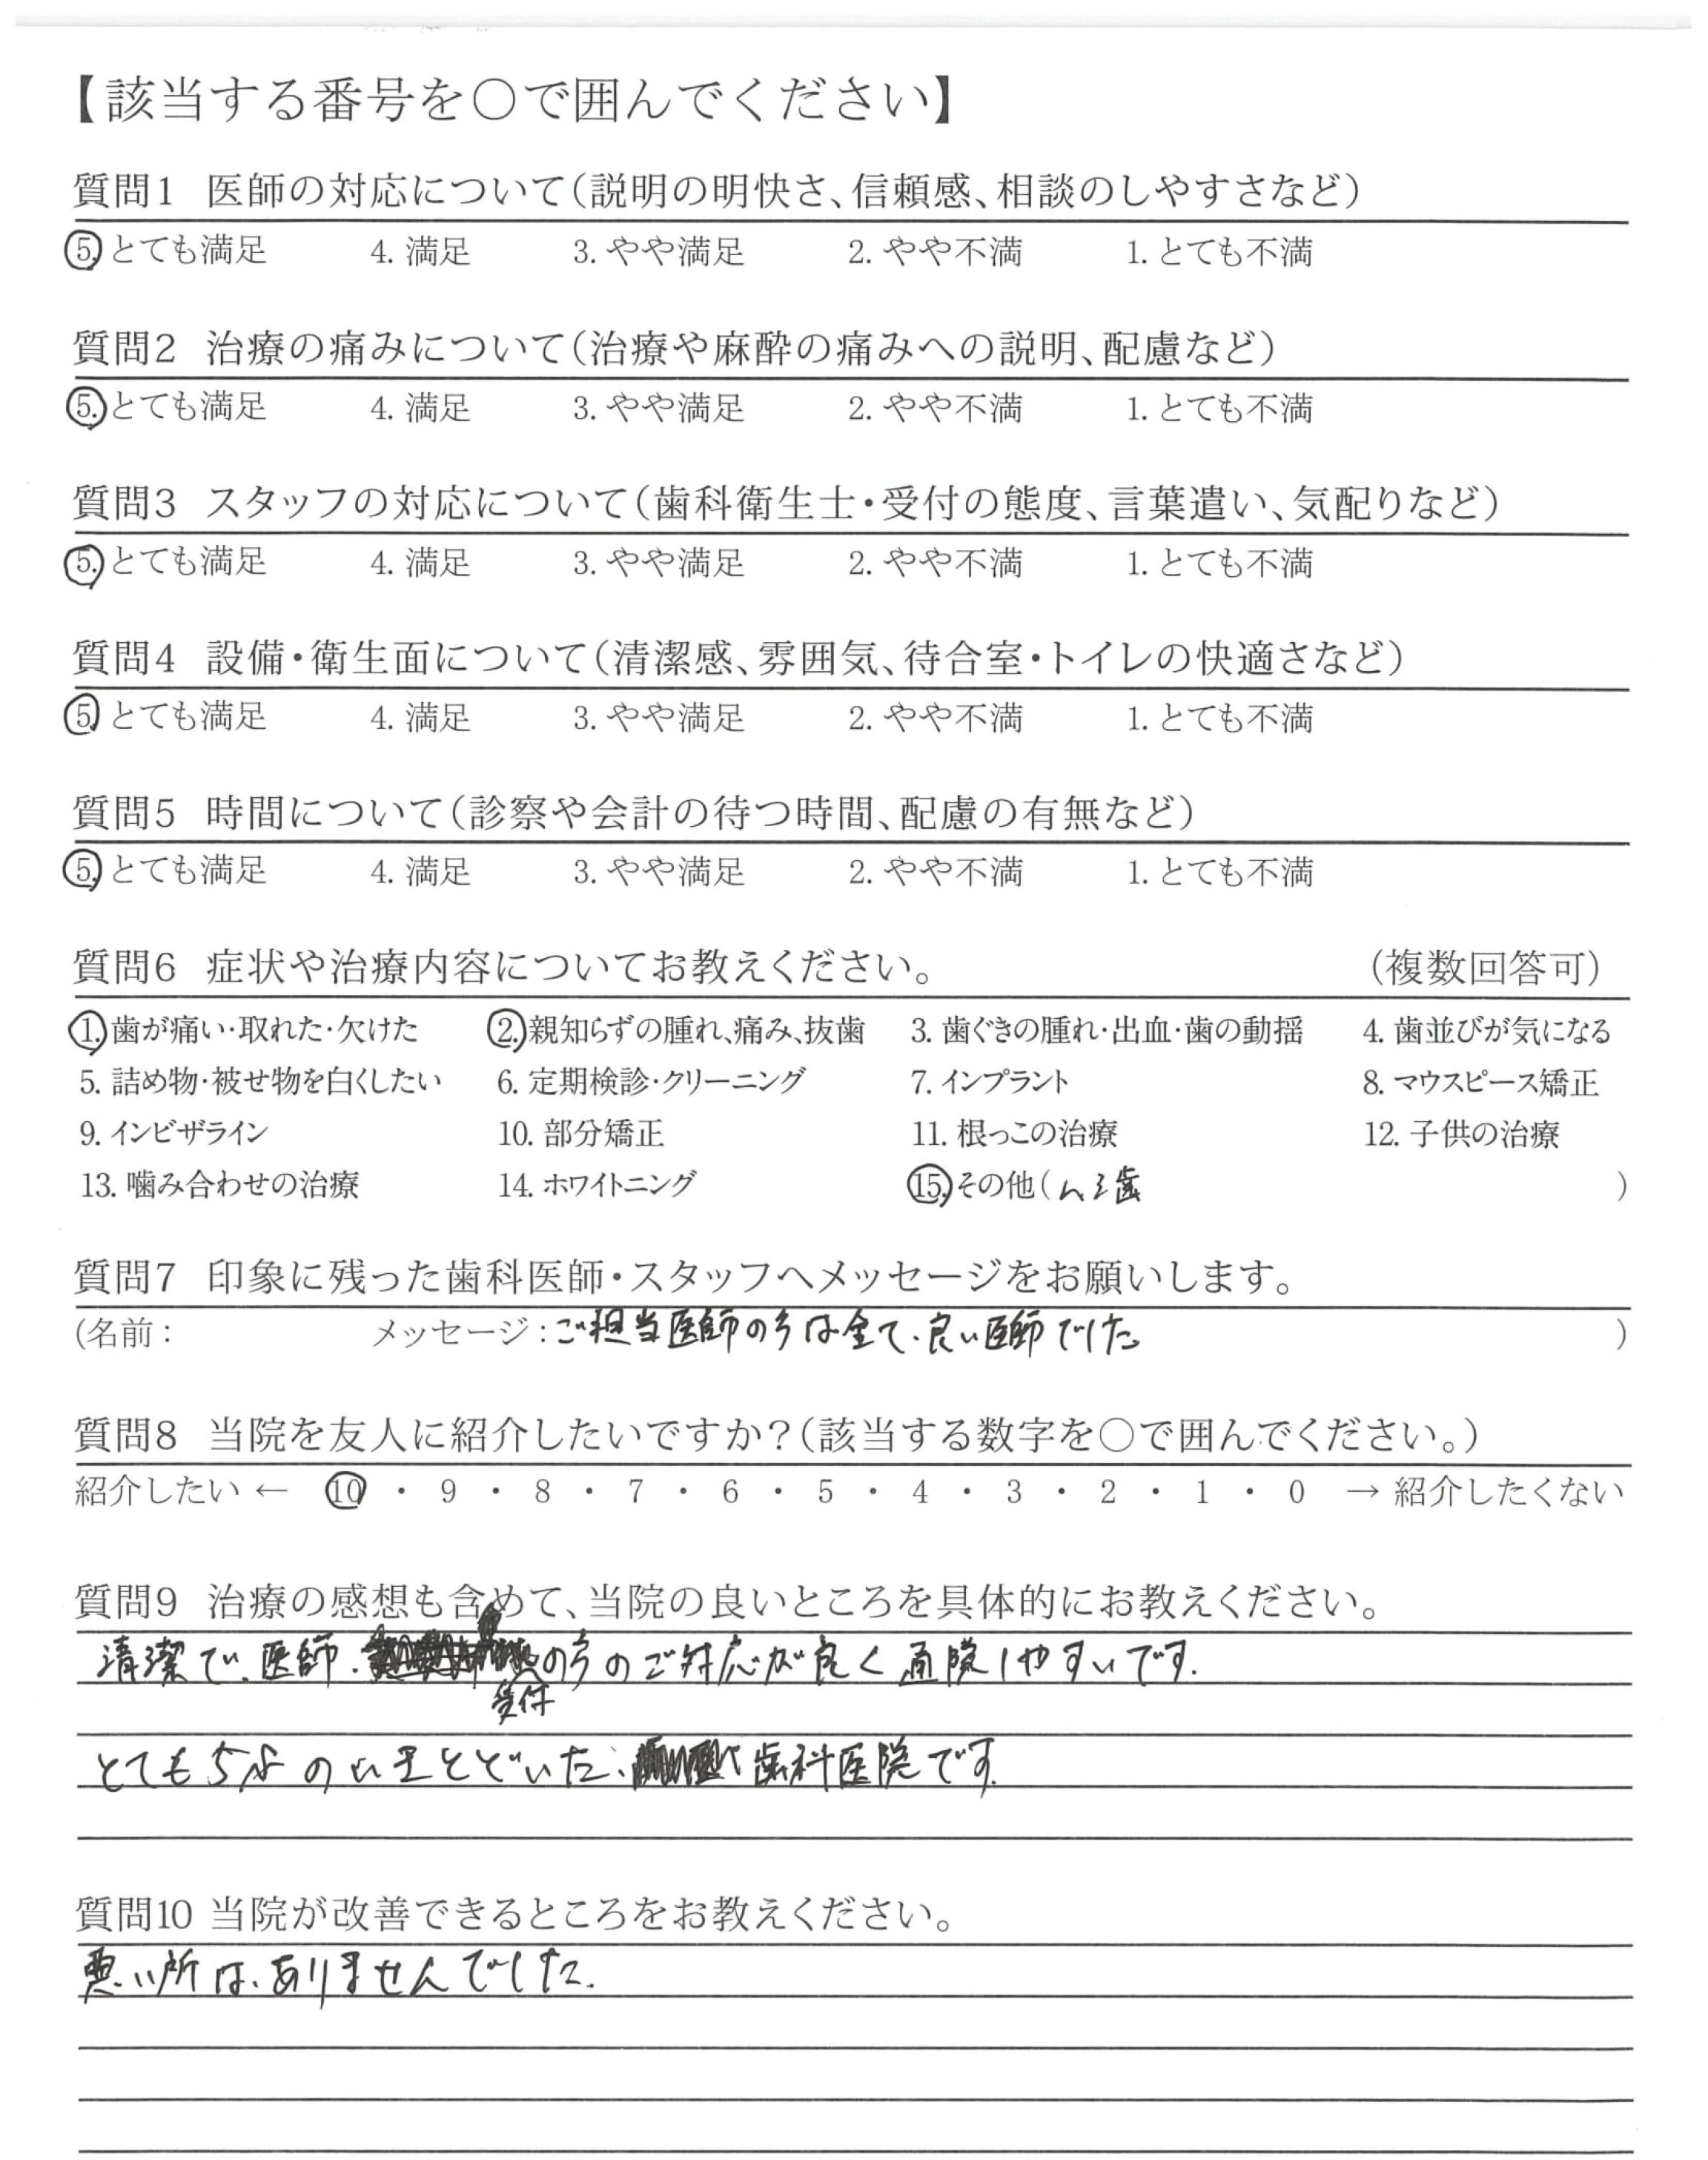 【該当する番号を○で囲んでください】
質問1 医師の対応について（説明の明快さ、信頼感、相談のしやすさなど）
5. とても満足 4. 満足 3. やや満足 2. やや不満 1. とても不満
質問2 治療の痛みについて（治療や麻酔の痛みへの説明、配慮など）
5. とても満足 4. 満足 3. やや満足 2. やや不満 1. とても不満
質問3 スタッフの対応について（歯科衛生士・受付の態度、言葉遣い、気配りなど）
5. とても満足 4. 満足 3. やや満足 2. やや不満 1. とても不満
質問4 設備・衛生面について（清潔感、雰囲気、待合室・トイレの快適さなど）
5. とても満足 4. 満足 3. やや満足 2. やや不満 1. とても不満
質問5 時間について（診察や会計の待つ時間、配慮の有無など）
5. とても満足 4. 満足 3. やや満足 2. やや不満 1. とても不満
質問6 症状や治療内容についてお教えください。 （複数回答可）
1. 歯が痛い・取れた・欠けた 2. 親知らずの腫れ、痛み、抜歯 3. 歯ぐきの腫れ・出血・歯の動揺 4. 歯並びが気になる
5. 詰め物・被せ物を白くしたい 6. 定期検診・クリーニング 7. インプラント 8. マウスピース矯正
9. インビザライン 10. 部分矯正 11. 根っこの治療 12. 子供の治療
13. 噛み合わせの治療 14. ホワイトニング 15. その他（ 歯 ）
質問7 印象に残った歯科医師・スタッフへメッセージをお願いします。
（名前： メッセージ：ご担当医師の方は全て、良い医師でした。 ）
質問8 当院を友人に紹介したいですか？（該当する数字を○で囲んでください。）
紹介したい ← 10 ・ 9 ・ 8 ・ 7 ・ 6 ・ 5 ・ 4 ・ 3 ・ 2 ・ 1 ・ 0 → 紹介したくない
質問9 治療の感想も含めて、当院の良いところを具体的にお教えください。
清潔で、医師、受付の方のご対応が良く通院しやすいです。
とても の とどいた、歯科医院です。
質問10 当院が改善できるところをお教えください。
悪い所は、ありませんでした。